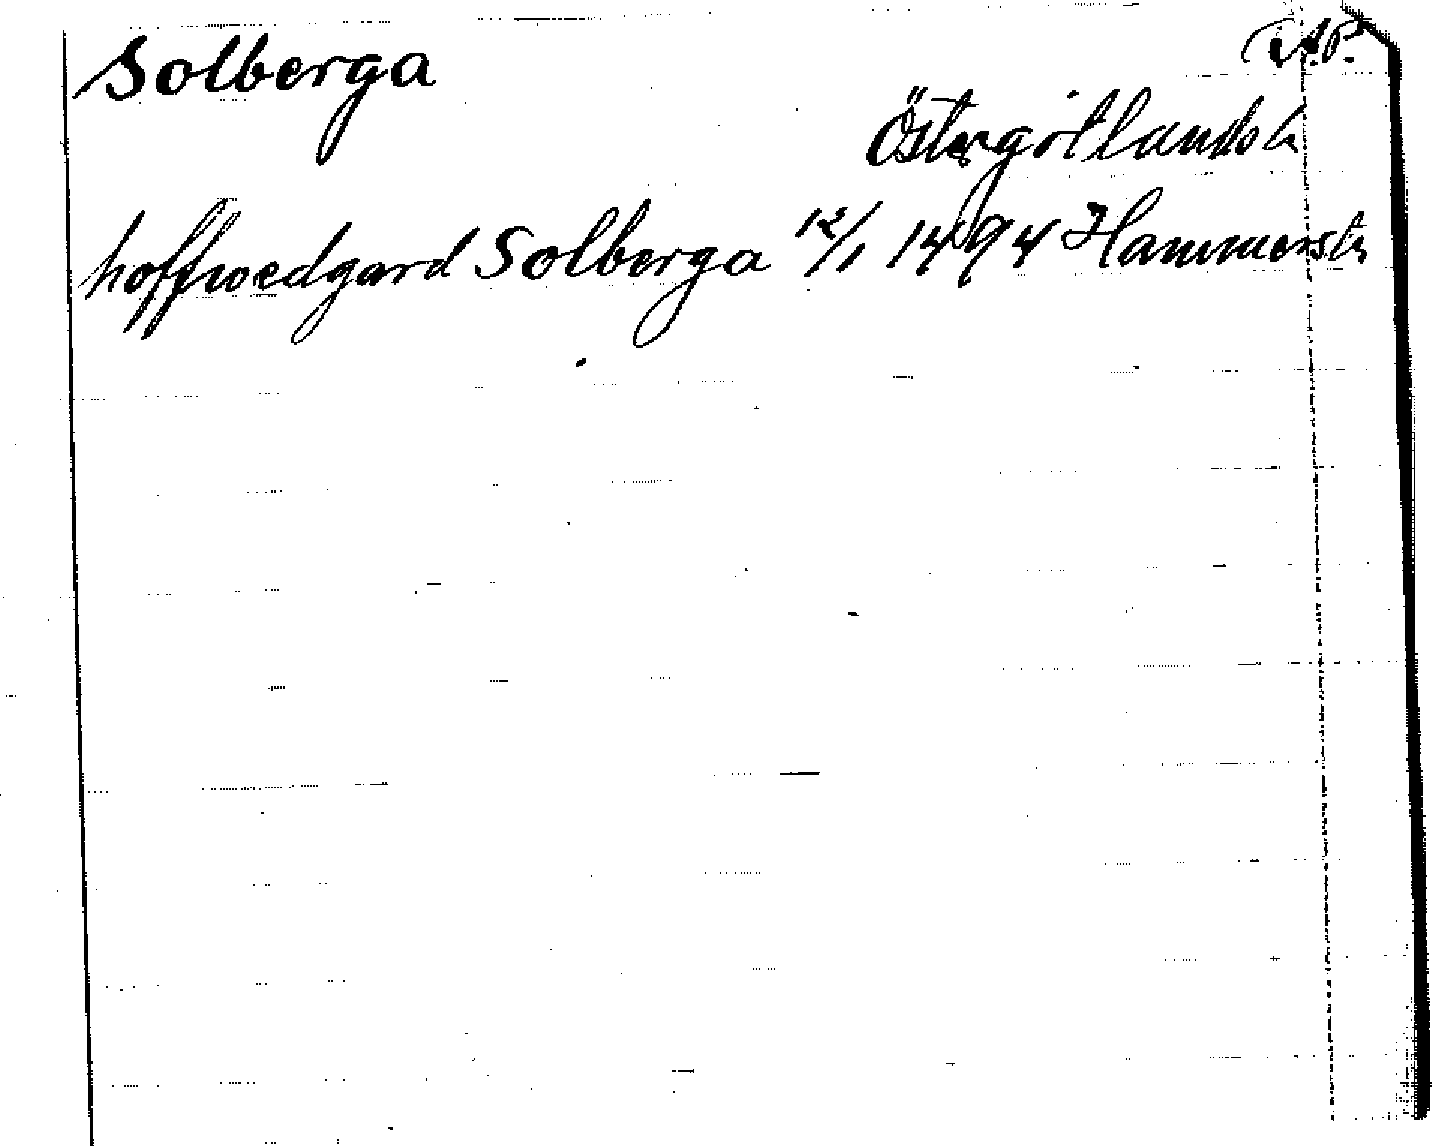 Solberga
Östergötlands h
hoffwedgard Solberga 12/1 1494 Hammersta